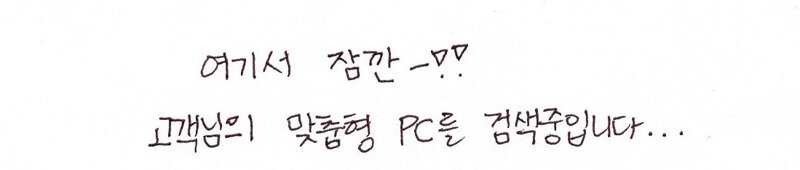 여기서 잠깐-!!
고객님의 맞춤형 PC를 검색중입니다...